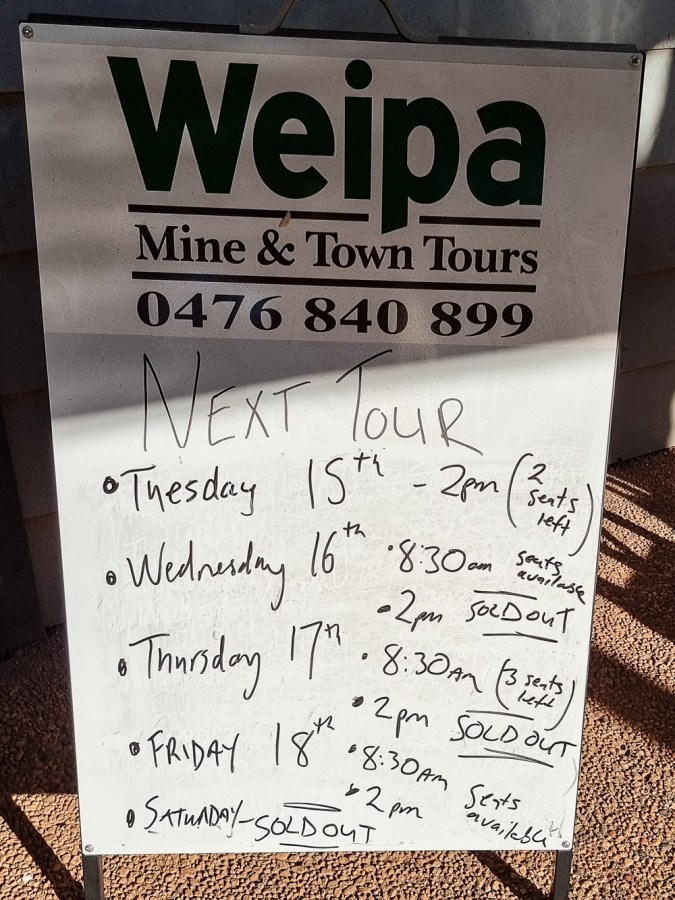 Weipa
Mine & Town Tours
0476 840 899
NEXT TOUR
• Tuesday 15th - 2pm (2 seats left)
• Wednesday 16th • 8:30am seats available
• 2pm SOLD OUT
• Thursday 17th • 8:30AM (3 seats left)
• 2pm SOLD OUT
• FRIDAY 18th • 8:30AM
• 2pm Seats available
• SATURDAY - SOLD OUT